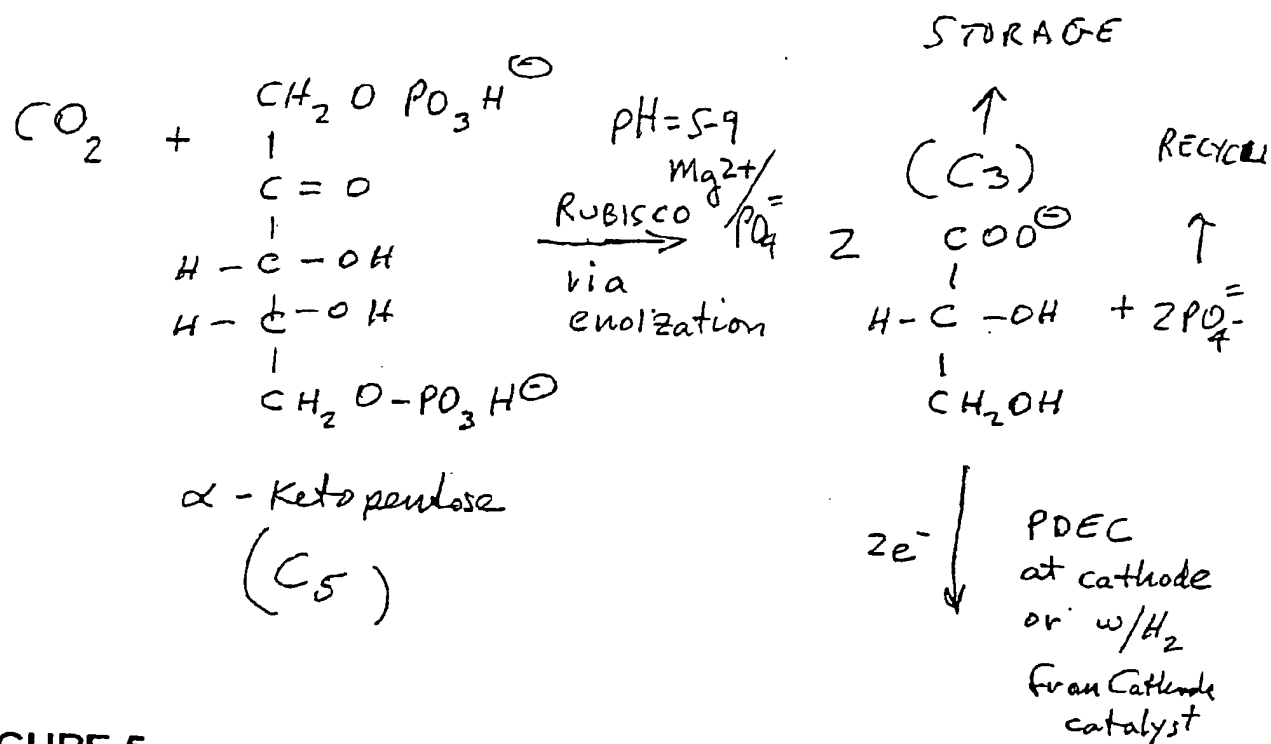 STORAGE
↑
CO2 + CH2 O PO3 H⊖
C = O
H - C - OH
H - C - OH
CH2 O - PO3 H⊖
α - Ketopentose
(C5)
pH = 5-9
Mg2+/
PO4=
RUBISCO
→
via
enolization
(C3)
2 COO⊖
H - C - OH
CH2OH
RECYCLE
↑
+ 2PO4=-
2e- ↓
PDEC
at cathode
or w/H2
from Cathode
catalyst